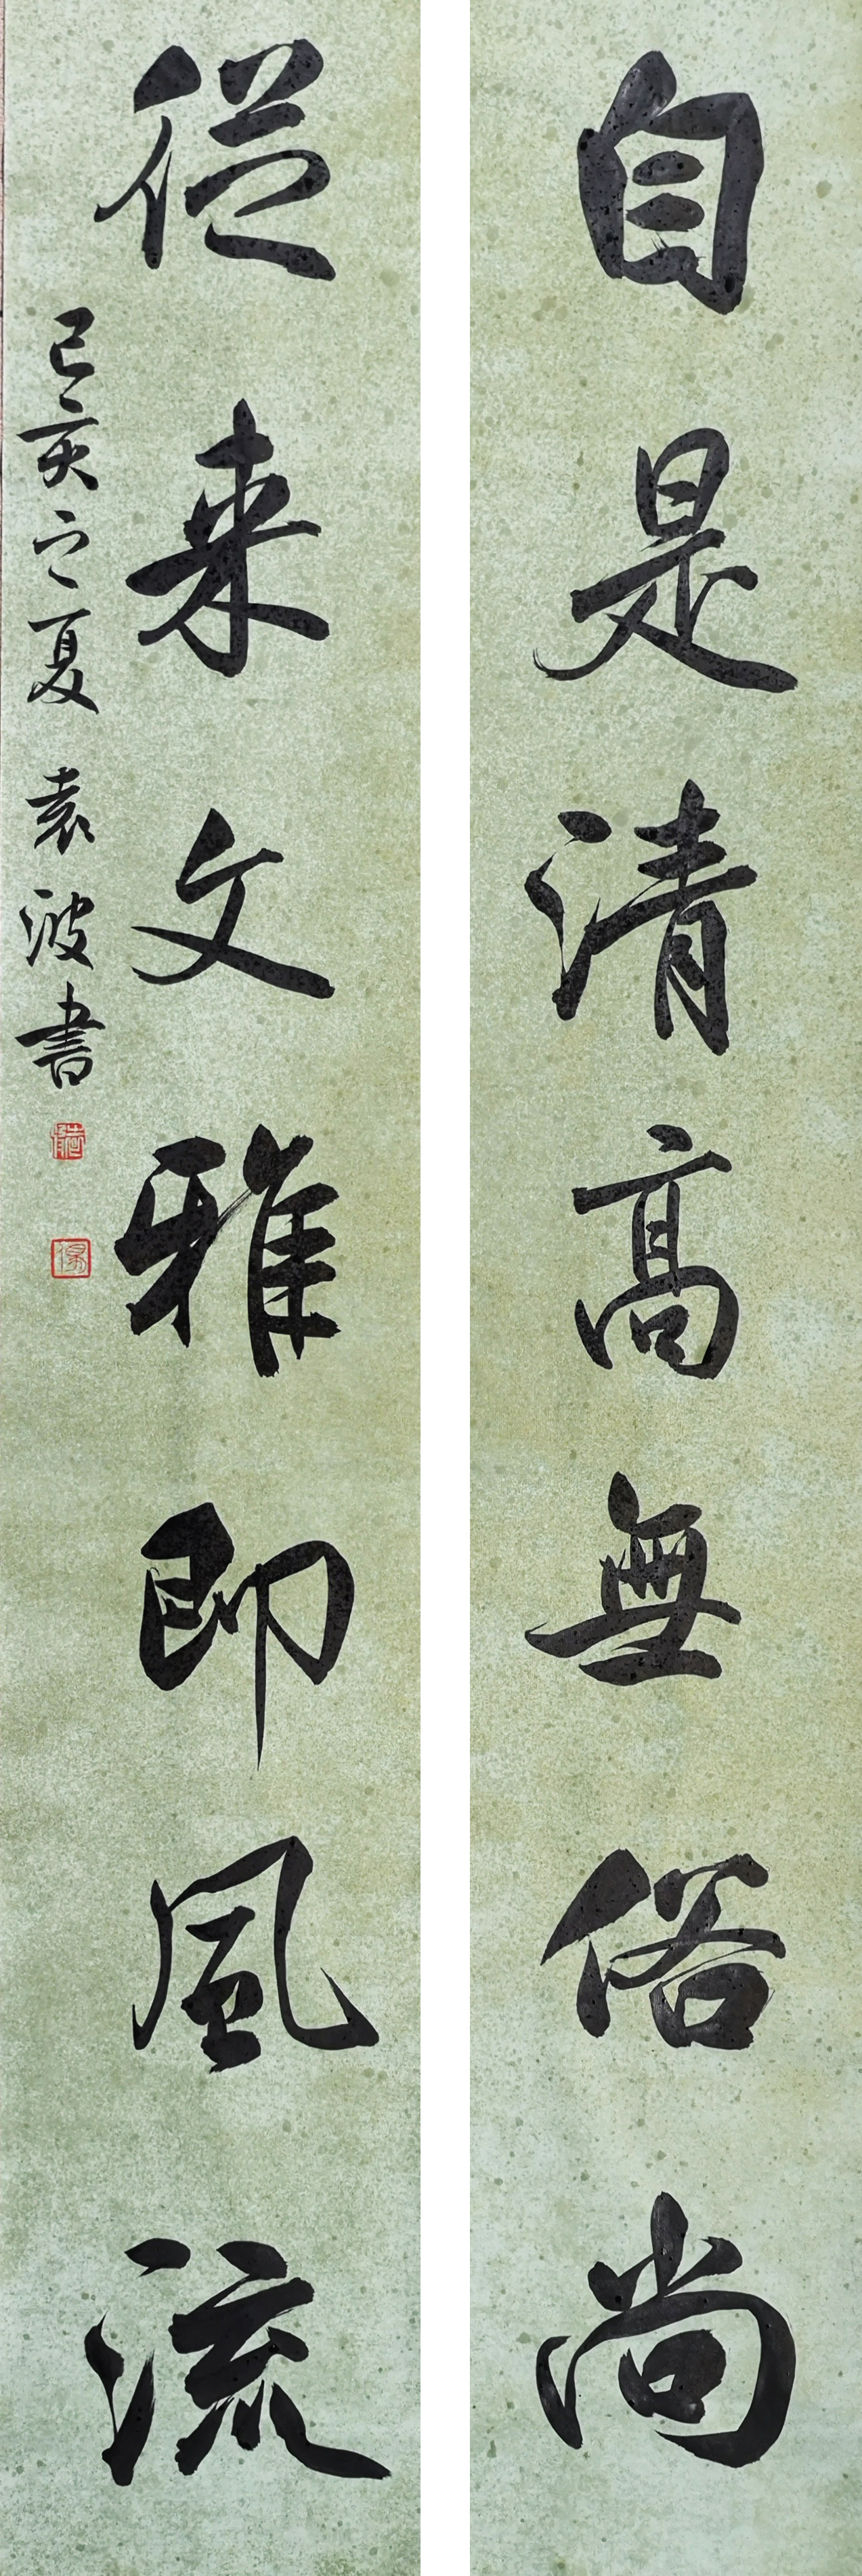 自是清高無俗尚
從来文雅即風流
己亥之夏 袁波書